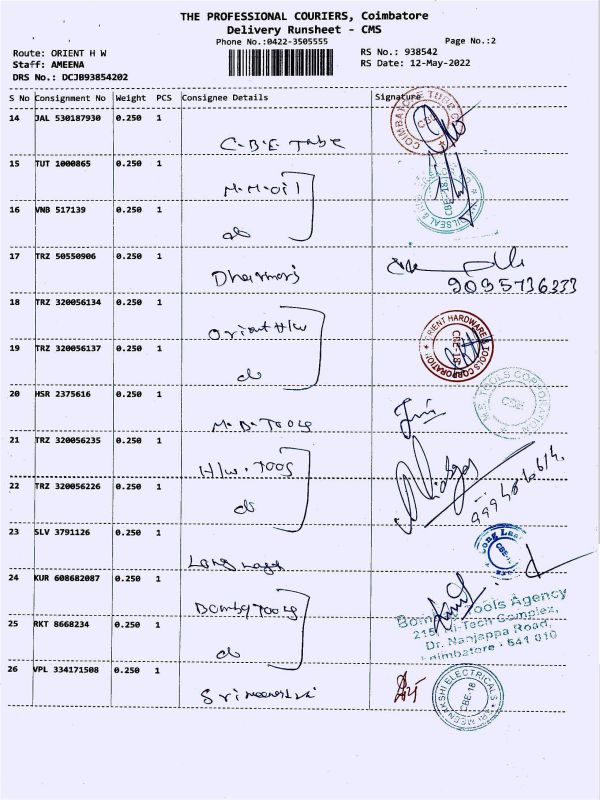 THE PROFESSIONAL COURIERS, Coimbatore
Delivery Runsheet - CMS
Phone No.:0422-3505555 Page No.:2
Route: ORIENT H W RS No.: 938542
Staff: AMEENA RS Date: 12-May-2022
DRS No.: DCJB93854202
S No Consignment No Weight PCS Consignee Details Signature
14 JAL 530187930 0.250 1
C.B.E. Tube
COIMBATORE TUBE CBE
15 TUT 1000865 0.250 1
M.M.oil
CBE-18
16 VNB 517139 0.250 1
do
17 TRZ 50550906 0.250 1
Dharmaraj
9095736333
18 TRZ 320056134 0.250 1
Orient H/w
ORIENT HARDWARE & TOOLS CORPORATION CBE-18
19 TRZ 320056137 0.250 1
do
20 HSR 2375616 0.250 1
M.B. Tools
TOOLS CORPORATION CBE
21 TRZ 320056235 0.250 1
H/w. Tools
22 TRZ 320056226 0.250 1
do
23 SLV 3791126 0.250 1
Long
24 KUR 608682087 0.250 1
Bombay Tools
Bombay Tools Agency
215, Hi-Tech Complex,
Dr. Nanjappa Road,
Coimbatore - 641 018
25 RKT 8668234 0.250 1
do
26 VPL 334171508 0.250 1
Sri meenakshi
SRI MEENAKSHI ELECTRICALS CBE-18